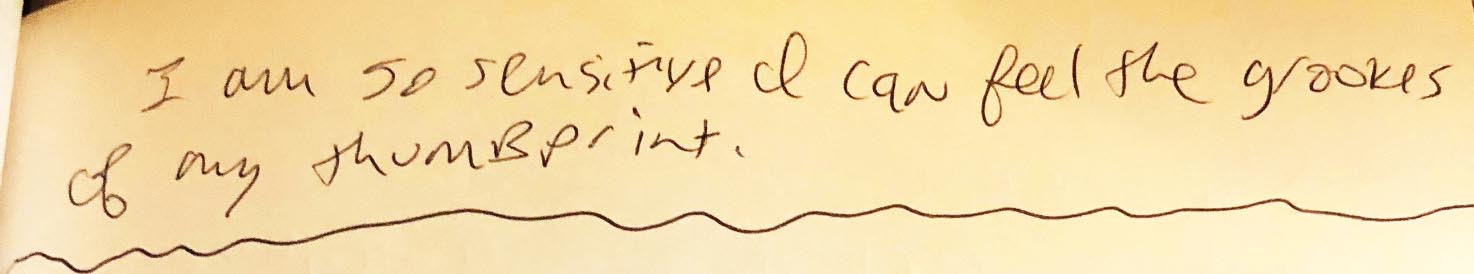 I am so sensitive I can feel the grooves
of my thumBprint.